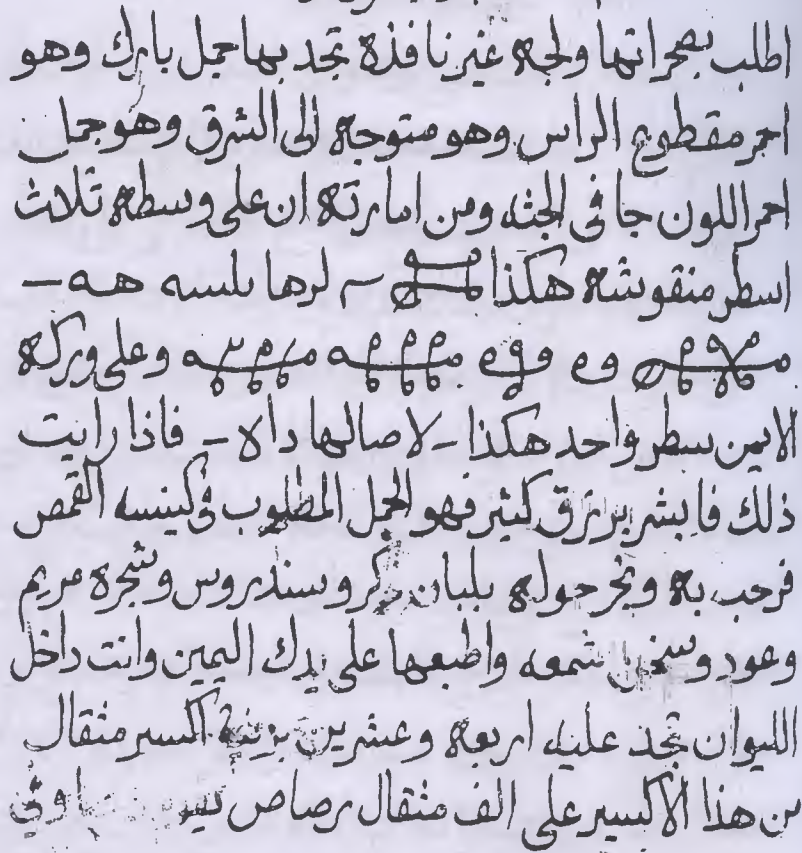 اطلب بصحراتها ولجه غير نافذة تجد بها جمل بارك وهو
احمر مقطوع الراس وهو متوجه الى الشرق وهو جمل
احمر اللون جافى الجثه ومن امارته ان على وسطه ثلاث
اسطر منقوشه هكذا
وعلى وركه
الايمن سطر واحد هكذا فاذا رايت
ذلك فابشر برزق كثير فهو الجمل المطلوب فى كنيسه القمص
فرحب به وبخر حوله بلبان دكر وسندروس وشجرة مريم
وعود شمعه واطبعها على يدك اليمين وانت داخل
الليوان تجد عليه اربعه وعشرين اكسير مثقال
من هذا الاكسير على الف مثقال رصاص